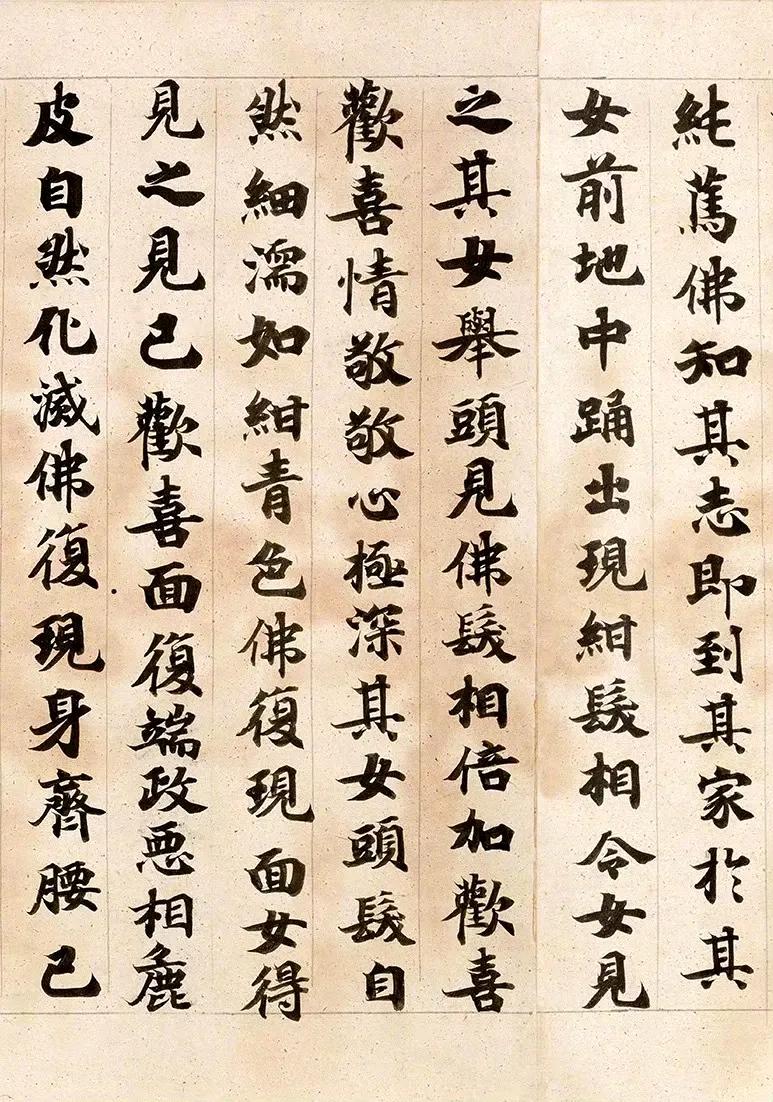 純萬佛知其志即到其家於其
女前地中踊出現紺髮相令女見
之其女舉頭見佛髮相倍加歡喜
歡喜情敬敬心極深其女頭髮自
然細濡如紺青色佛復現面女得
見之見已歡喜面復端政惡相麁
皮自然化滅佛復現身齊腰已